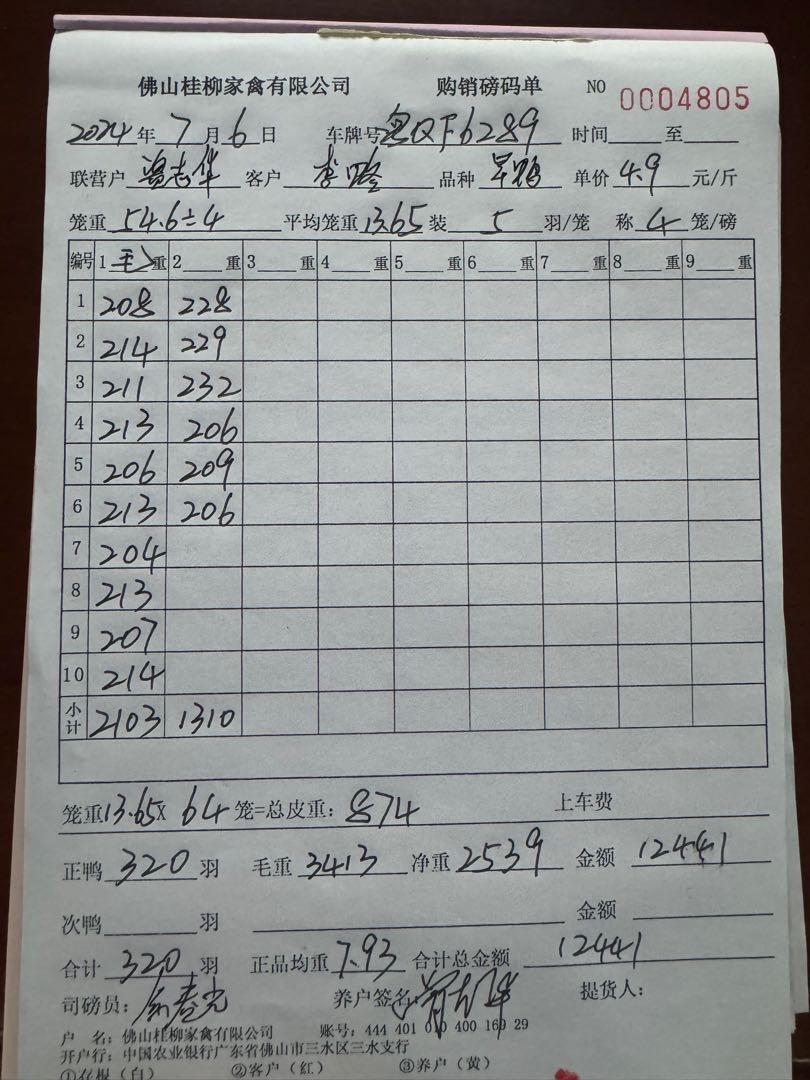 佛山桂柳家禽有限公司 购销磅码单 NO 0004805
2024年7月6日 车牌号粤QF6289 时间 至
联营户 志华 客户 李 品种 旱鸭 单价 4.9 元/斤
笼重 54.6÷4 平均笼重 13.65 装 5 羽/笼 称 4 笼/磅
编号 1 毛 重 2 重 3 重 4 重 5 重 6 重 7 重 8 重 9 重
1 208 228
2 214 229
3 211 232
4 213 206
5 206 209
6 213 206
7 204
8 213
9 207
10 214
小计 2103 1310
笼重13.65X 64 笼=总皮重：874 上车费
正鸭 320 羽 毛重 3413 净重 2539 金额 12441
次鸭 羽 金额
合计 320 羽 正品均重 7.93 合计总金额 12441
司磅员： 养户签名： 提货人：
户 名：佛山桂柳家禽有限公司 账号：444 401 010 400 169 29
开户行：中国农业银行广东省佛山市三水区三水支行
①存根（白） ②客户（红） ③养户（黄）